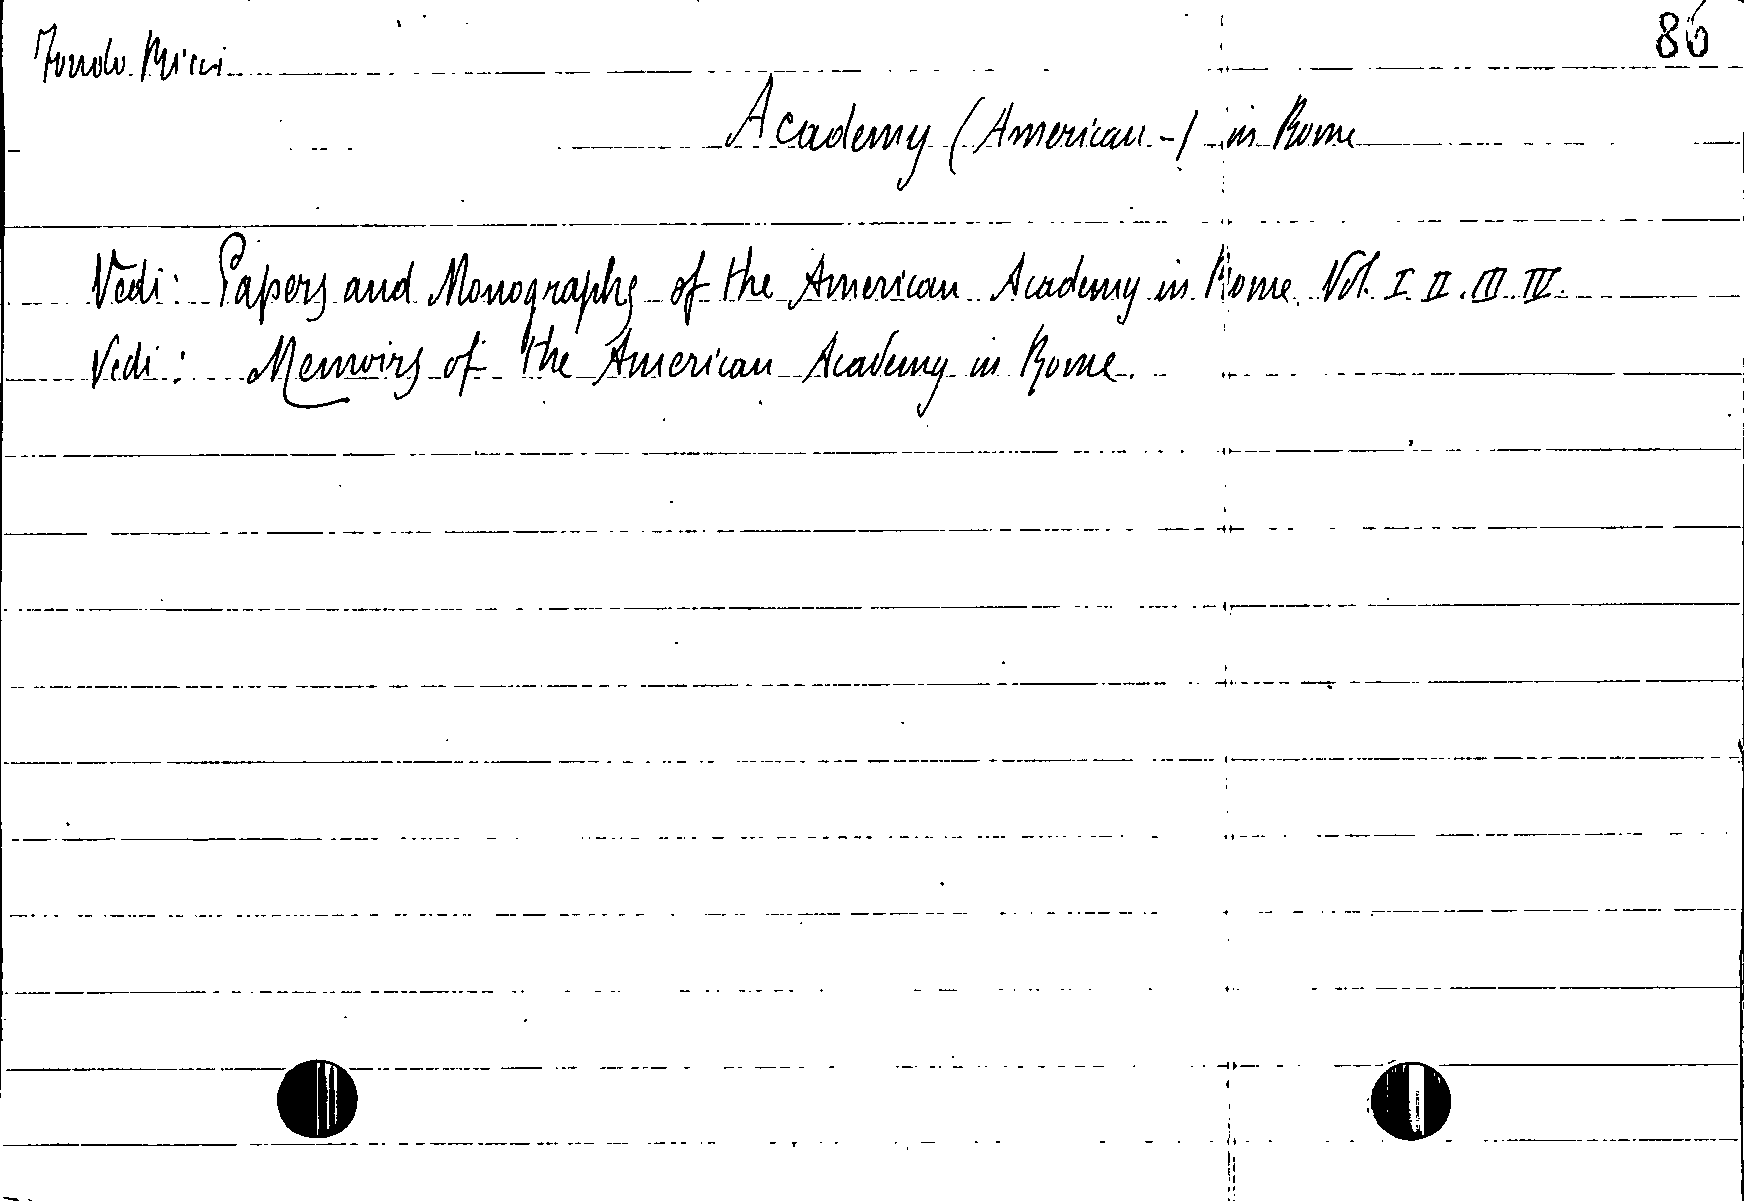 Fondo Ricci
86
Academy (American -) in Rome
Vedi: Papers and Monographs of the American Academy in Rome. Vol. I. II. III. IV.
Vedi: Memoirs of the American Academy in Rome.